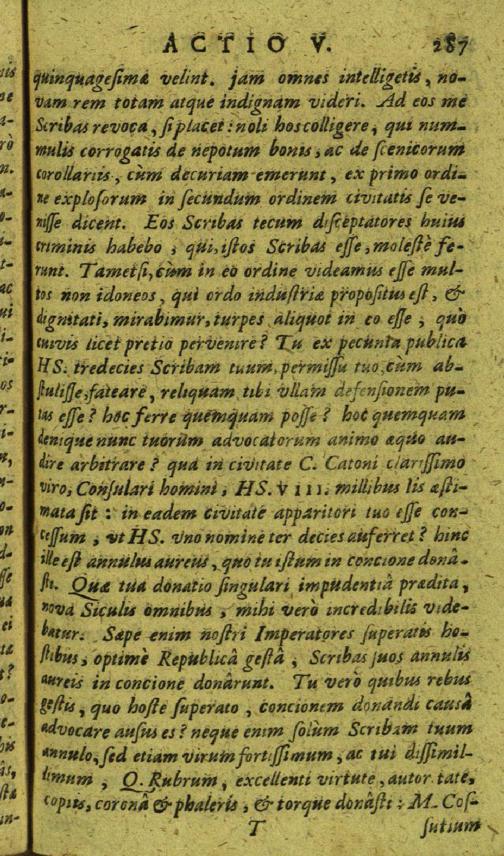 ACTIO V. 287
quinquagesimæ velint. jam omnes intelligetis, no-
vam rem totam atque indignam videri. Ad eos me
Scribas revoca, si placet: noli hos colligere, qui num-
mulis corrogatis de nepotum bonis, ac de scenicorum
corollariis, cùm decuriam emerunt, ex primo ordi-
ne explosorum in secundum ordinem civitatis se ve-
nisse dicent. Eos Scribas tecum disceptatores huius
criminis habebo, qui, istos Scribas esse, molestè fe-
runt. Tametsi, cùm in eo ordine videamus esse mul-
tos non idoneos, qui ordo industriæ propositus est, &
dignitati, mirabimur, turpes aliquot in eo esse, quò
cuivis licet pretio pervenire? Tu ex pecunia publica
HS. tredecies Scribam tuum, permissu tuo, cùm ab-
stulisse, fateare, reliquam tibi ullam defensionem pu-
tas esse? hoc ferre quemquam posse? hoc quemquam
denique nunc tuorùm advocatorum animo æquo au-
dire arbitrare? quâ in civitate C. Catoni clarissimo
viro, Consulari homini, HS. VIII. millibus lis æsti-
mata sit: in eadem civitate apparitori tuo esse con-
cessum, ut HS. uno nomine ter decies auferret? hinc
ille est annulus aureus, quo tu istum in concione donâ-
sti. Quæ tua donatio singulari impudentiâ prædita,
nova Siculis omnibus, mihi verò incredibilis vide-
batur. Sæpe enim nostri Imperatores superatis ho-
stibus, optimè Republicâ gestâ, Scribas suos annulis
aureis in concione donârunt. Tu verò quibus rebus
gestis, quo hoste superato, concionem donandi causâ
advocare ausus es? neque enim solùm Scribam tuum
annulo, sed etiam virum fortissimum, ac tui dissimil-
limum, Q. Rubrum, excellenti virtute, autor tate,
copiis, coronâ & phaleris, & torque donâsti: M. Cos-
T sutium